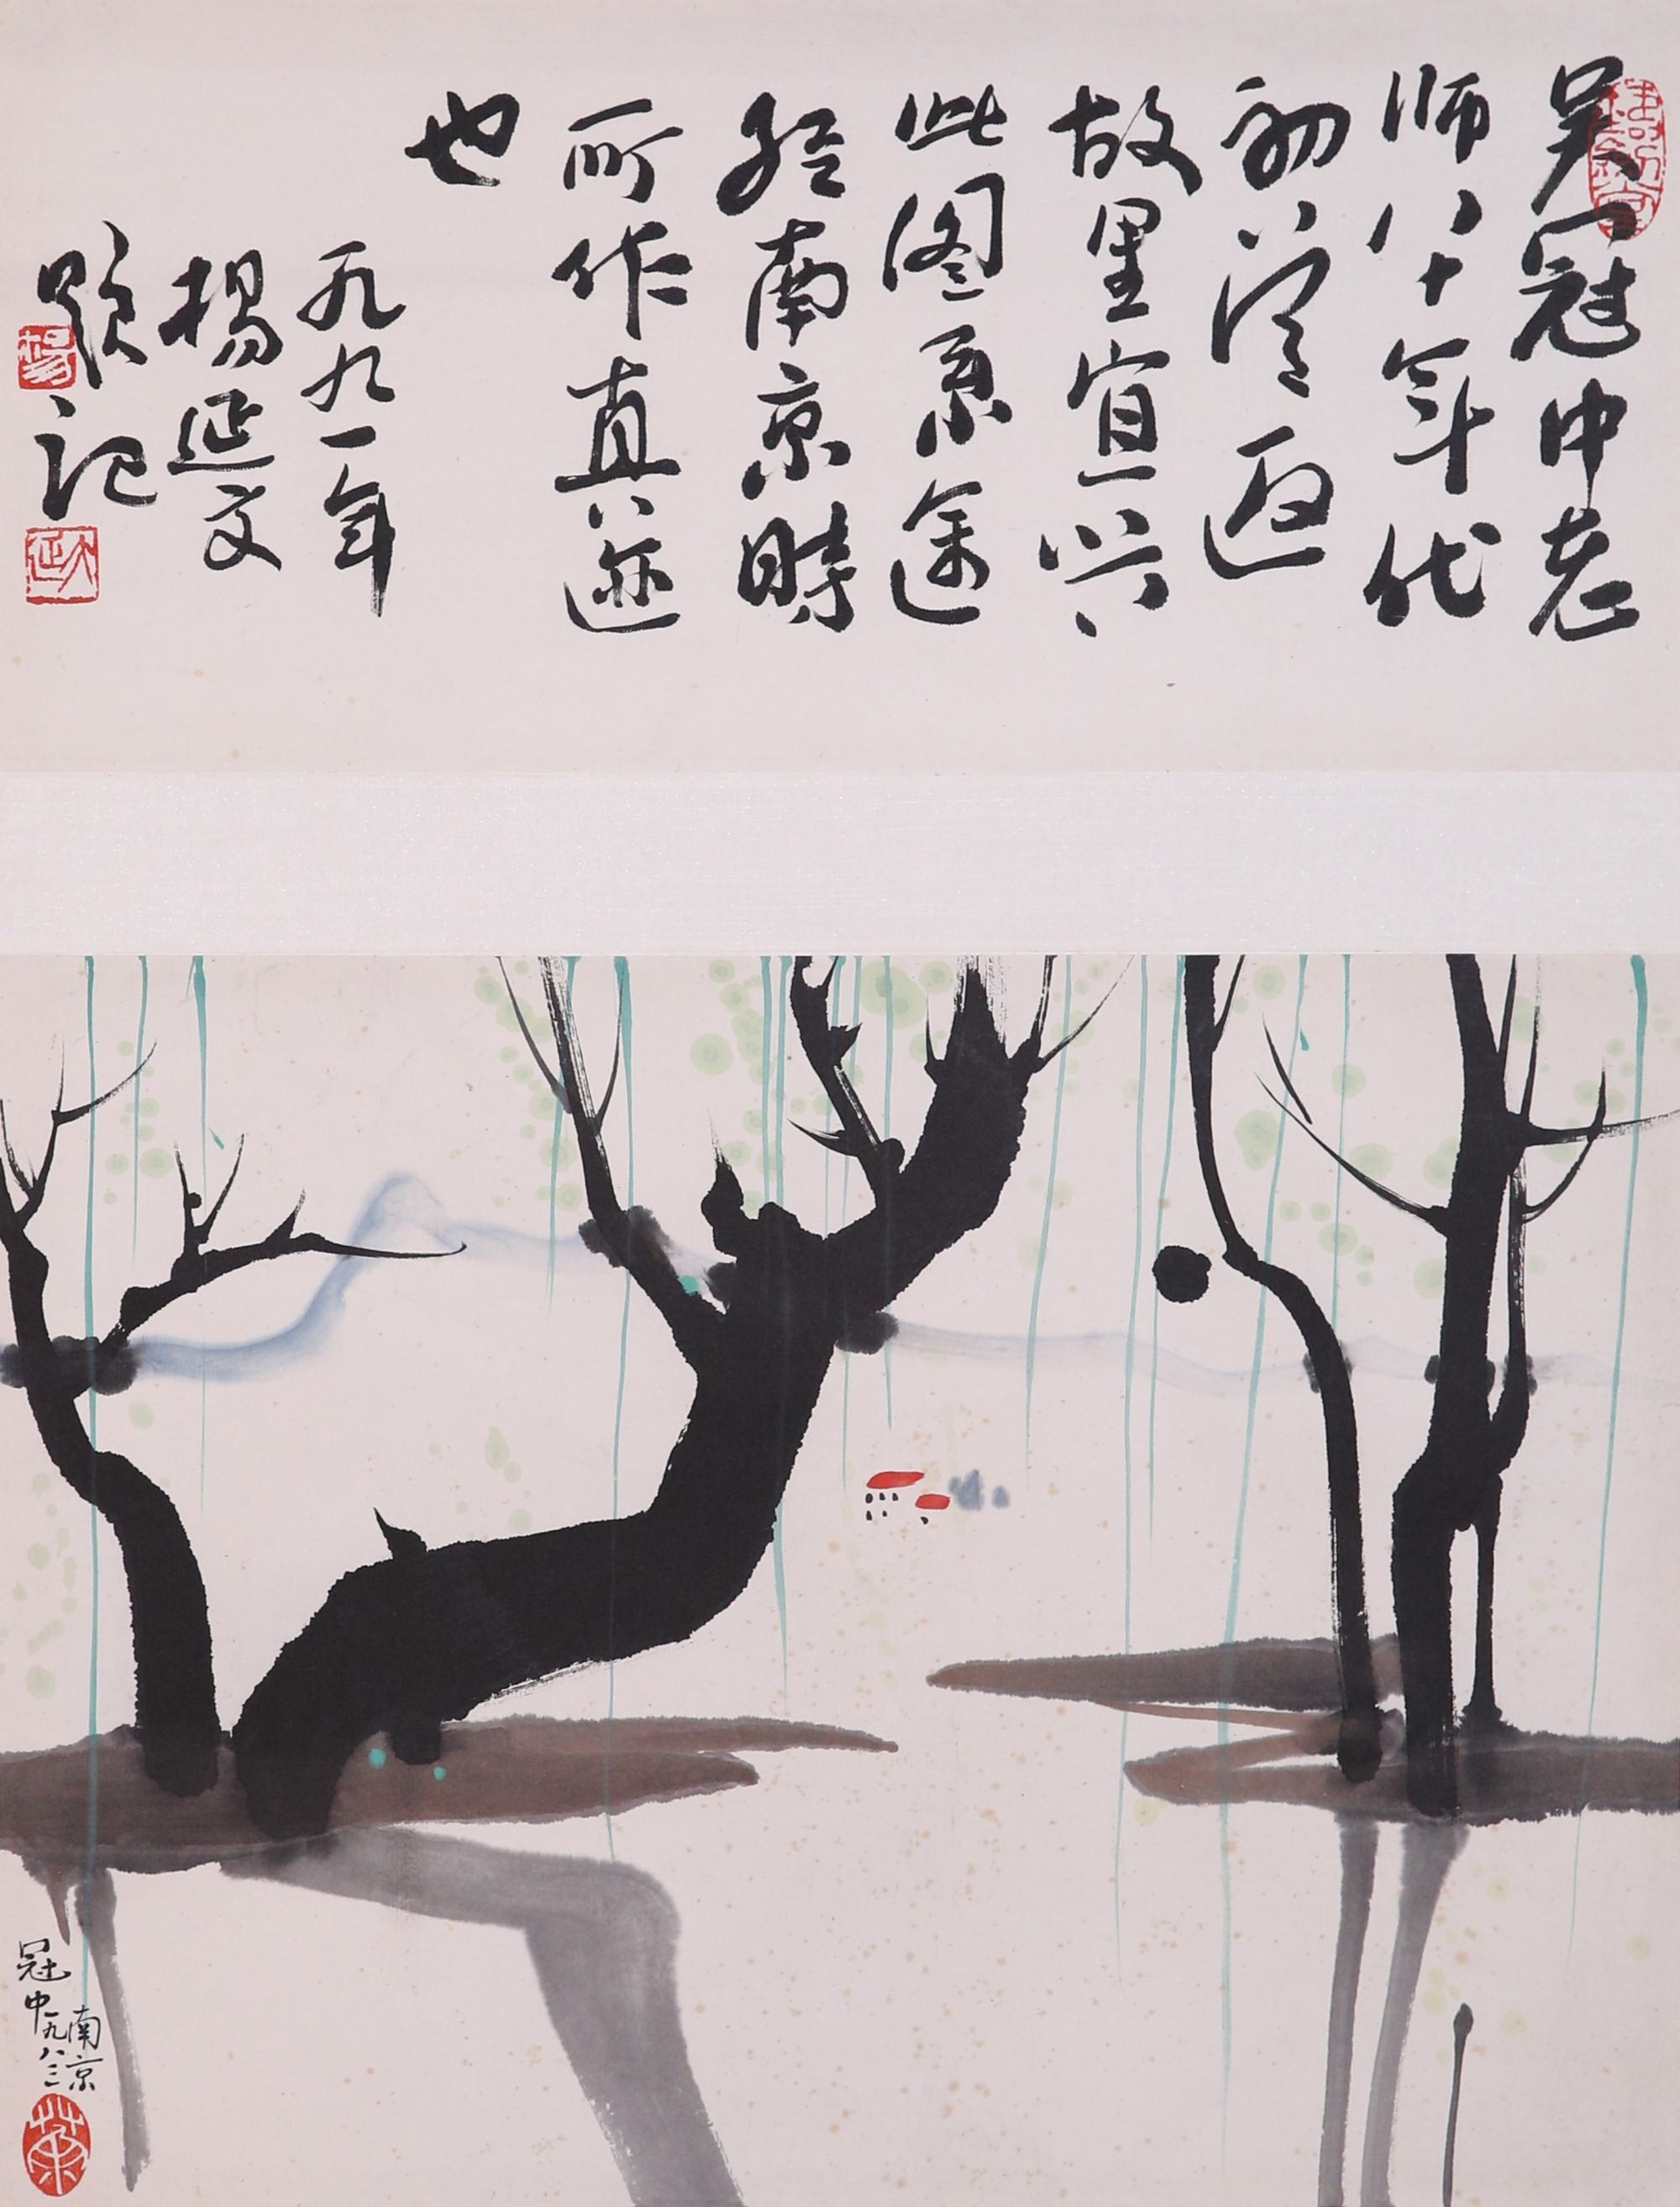 吴冠中老
师八十年代
初返
故里宜兴
此图系途
经南京时
所作真迹
也
一九九一年
杨延文
题记
杨
延文
冠中一九八三
南京
荼